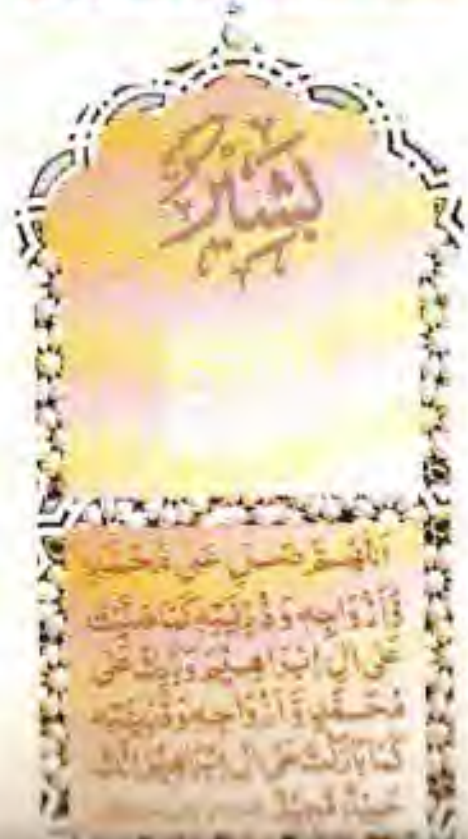 بَشِيْرٌ
اَللّٰهُمَّ صَلِّ عَلٰى مُحَمَّدٍ
وَّاَزْوَاجِهٖ وَذُرِّيَّتِهٖ كَمَا صَلَّيْتَ
عَلٰى اٰلِ اِبْرَاهِيْمَ وَبَارِكْ عَلٰى
مُحَمَّدٍ وَّاَزْوَاجِهٖ وَذُرِّيَّتِهٖ
كَمَا بَارَكْتَ عَلٰى اٰلِ اِبْرَاهِيْمَ اِنَّكَ
حَمِيْدٌ مَّجِيْدٌ